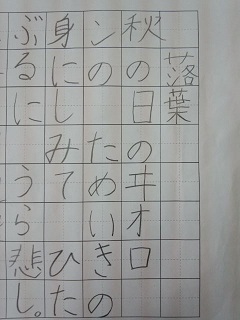 落葉
秋の日のヰオロ
ンの ためいきの
身にしみて ひた
ぶるに うら悲し。